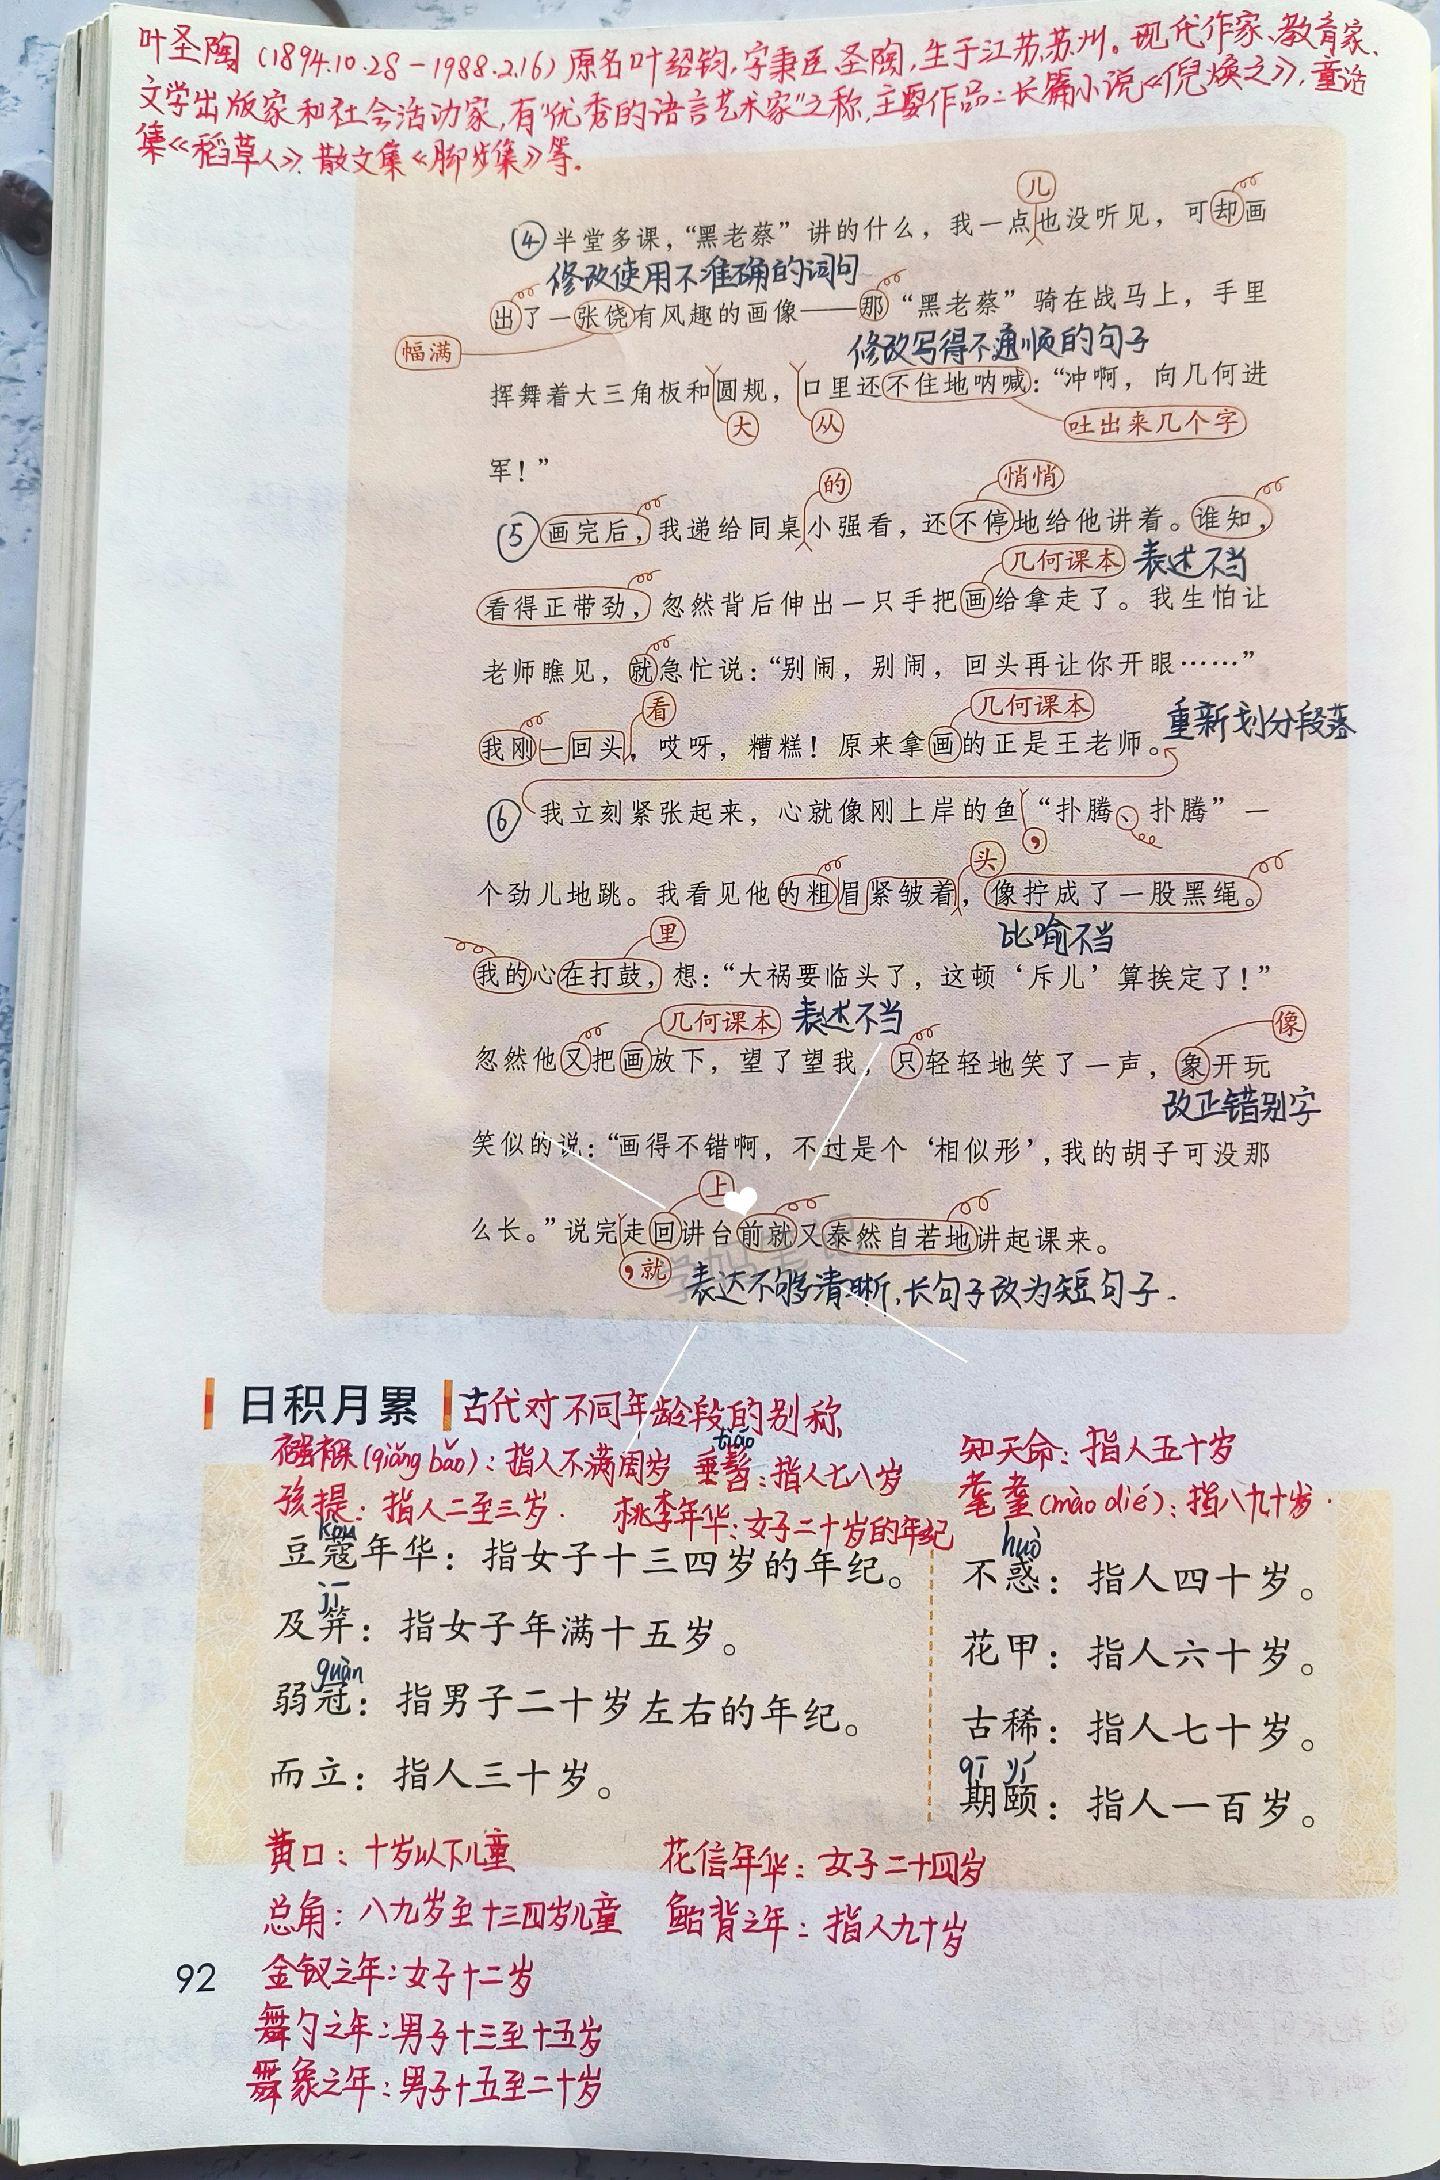 叶圣陶(1894.10.28-1988.2.16)原名叶绍钧,字秉臣、圣陶,生于江苏苏州。现代作家、教育家、
文学出版家和社会活动家,有"优秀的语言艺术家"之称,主要作品:长篇小说《倪焕之》,童话
集《稻草人》、散文集《脚步集》等.
儿
④半堂多课,“黑老蔡”讲的什么,我一点也没听见,可却画
修改使用不准确的词句
出了一张饶有风趣的画像——那“黑老蔡”骑在战马上,手里
幅满
修改写得不通顺的句子
挥舞着大三角板和圆规,口里还不住地呐喊:“冲啊,向几何进
大 从 吐出来几个字
军!”
的 悄悄
⑤画完后,我递给同桌小强看,还不停地给他讲着。谁知,
几何课本 表述不当
看得正带劲,忽然背后伸出一只手把画给拿走了。我生怕让
老师瞧见,就急忙说:“别闹,别闹,回头再让你开眼……”
看 几何课本 重新划分段落
我刚一回头,哎呀,糟糕!原来拿画的正是王老师。
⑥我立刻紧张起来,心就像刚上岸的鱼“扑腾、扑腾”一
, 头
个劲儿地跳。我看见他的粗眉紧皱着,像拧成了一股黑绳。
里 比喻不当
我的心在打鼓,想:“大祸要临头了,这顿‘斥儿’算挨定了!”
几何课本 表述不当 像
忽然他又把画放下,望了望我,只轻轻地笑了一声,象开玩
改正错别字
笑似的说:“画得不错啊,不过是个‘相似形’,我的胡子可没那
上
么长。”说完走回讲台前就又泰然自若地讲起课来。
,就 表达不够清晰,长句子改为短句子.
日积月累 古代对不同年龄段的别称
襁褓(qiǎng bǎo):指人不满周岁 垂髫:指人七八岁 知天命:指人五十岁
tiáo
孩提:指人二至三岁. 桃李年华:女子二十岁的年纪 耄耋(mào dié):指八九十岁.
kòu huò
豆蔻年华:指女子十三四岁的年纪。 不惑:指人四十岁。
jī
及笄:指女子年满十五岁。 花甲:指人六十岁。
guàn
弱冠:指男子二十岁左右的年纪。 古稀:指人七十岁。
qī yí
而立:指人三十岁。 期颐:指人一百岁。
黄口:十岁以下儿童 花信年华:女子二十四岁
总角:八九岁至十三四岁儿童 鲐背之年:指人九十岁
92 金钗之年:女子十二岁
舞勺之年:男子十三至十五岁
舞象之年:男子十五至二十岁